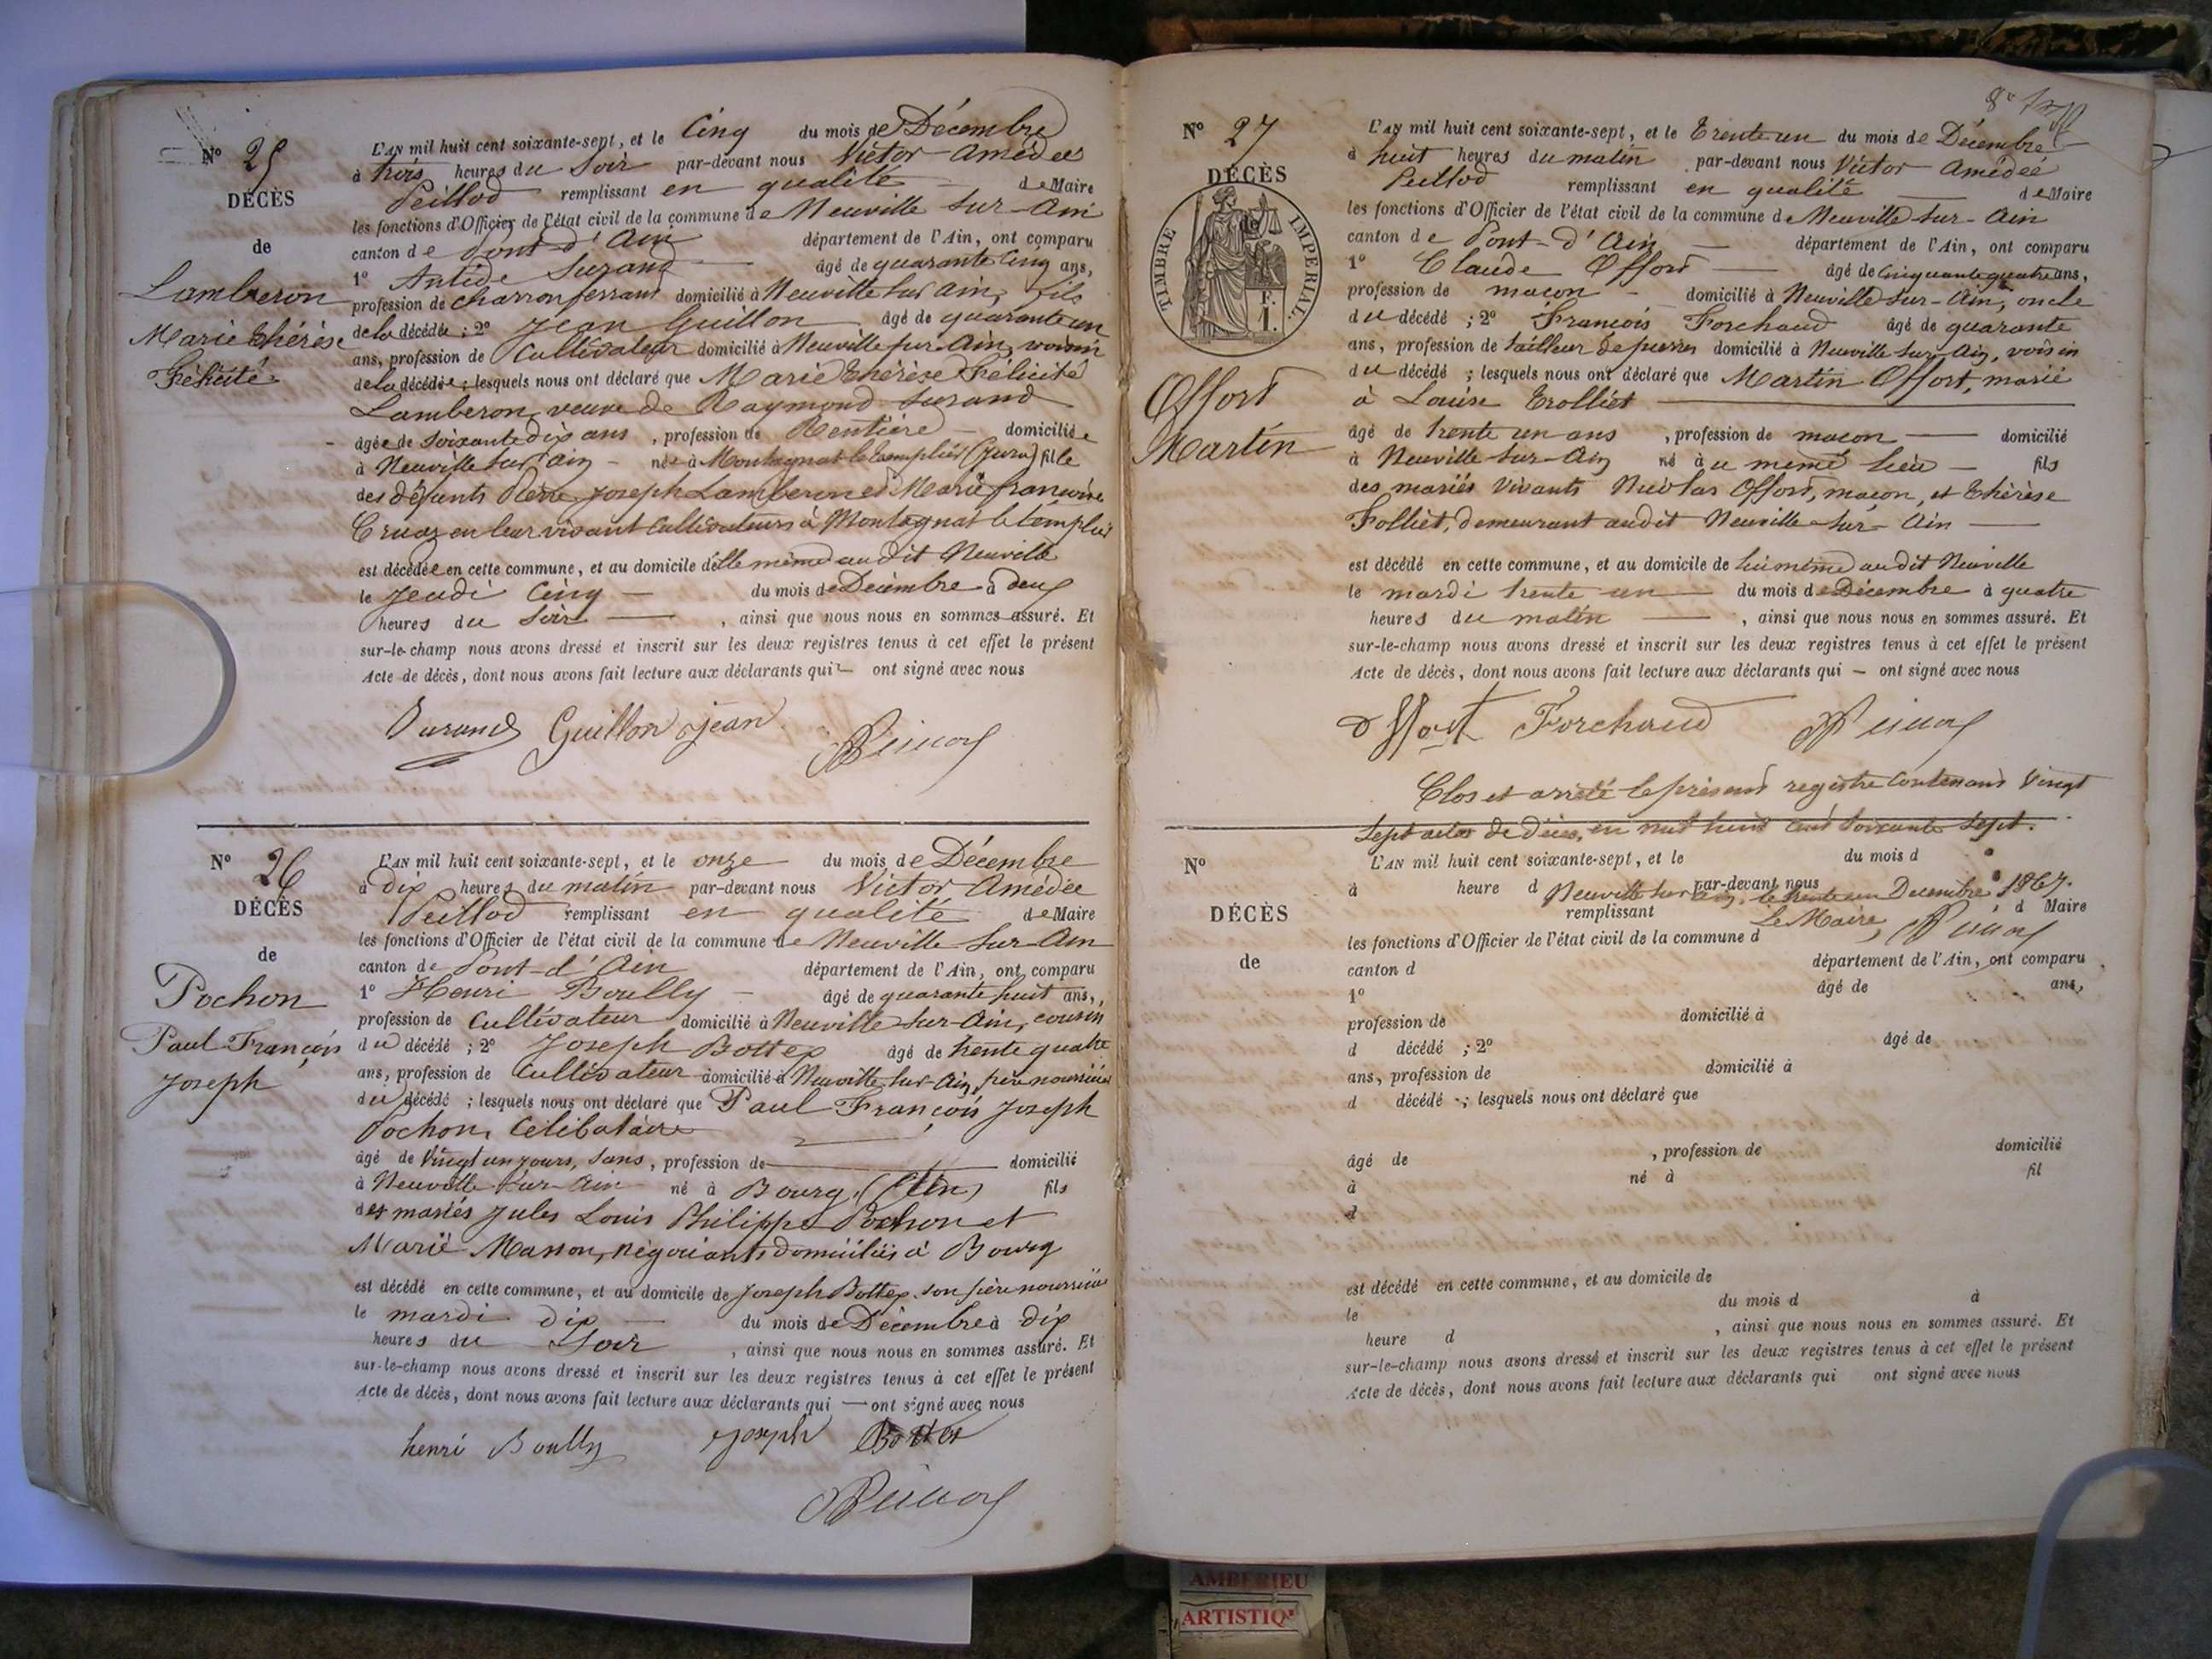 N° 25
DÉCÈS
de
Lamberon
Marie Thérèse
Félicité
L'AN mil huit cent soixante-sept, et le Cinq du mois de Décembre
à trois heures du Soir par-devant nous Victor-Amédée
Peillod remplissant en qualité de Maire
les fonctions d'Officier de l'état civil de la commune de Neuville sur-Ain
canton de Pont d'Ain département de l'Ain, ont comparu
1° Antide Surand âgé de quarante Cinq ans,
profession de charron ferrant domicilié à Neuville sur ain, fils
de la décédée ; 2° Jean Guillon âgé de quarante un
ans, profession de Cultivateur domicilié à Neuville sur-Ain, voisin
de la décédée ; lesquels nous ont déclaré que Marie Thérèse Félicité
Lamberon, veuve de Raymond Surand
âgée de soixante dix ans , profession de Rentière domiciliée
à Neuville sur ain née à Montagnat le templier (Jura) fille
des défunts Pierre Joseph Lamberon et Marie françoise
Cruaz en leur vivant Cultivateurs à Montagnat le templier
est décédée en cette commune, et au domicile d'elle même audit Neuville
le Jeudi Cinq du mois de Décembre à deux
heures du Soir , ainsi que nous nous en sommes assuré. Et
sur-le-champ nous avons dressé et inscrit sur les deux registres tenus à cet effet le présent
Acte de décès, dont nous avons fait lecture aux déclarants qui ont signé avec nous
Surand Guillon jean
N° 26
DÉCÈS
de
Pochon
Paul François
Joseph
L'AN mil huit cent soixante-sept, et le onze du mois de Décembre
à dix heures du matin par-devant nous Victor Amédée
Peillod remplissant en qualité de Maire
les fonctions d'Officier de l'état civil de la commune de Neuville-Sur-Ain
canton de Pont-d'Ain département de l'Ain, ont comparu
1° Henri Boully âgé de quarante huit ans,
profession de Cultivateur domicilié à Neuville sur-Ain, cousin
du décédé ; 2° Joseph Bottex âgé de trente quatre
ans, profession de Cultivateur domicilié à Neuville sur-Ain, père nourricier
du décédé ; lesquels nous ont déclaré que Paul François Joseph
Pochon, Célibataire
âgé de Vingt un jours, sans , profession de domicilié
à Neuville-sur-Ain né à Bourg (Ain) fils
des mariés Jules Louis Philippe Pochon et
Marie Masson, négociants domiciliés à Bourg
est décédé en cette commune, et au domicile de Joseph Bottex son père nourricier
le mardi dix du mois de Décembre à dix
heures du Soir , ainsi que nous nous en sommes assuré. Et
sur-le-champ nous avons dressé et inscrit sur les deux registres tenus à cet effet le présent
Acte de décès, dont nous avons fait lecture aux déclarants qui — ont signé avec nous
henri Boully joseph Bottex
N° 27
DÉCÈS
TIMBRE IMPERIAL.
F.
I.
Offort
Martin
L'AN mil huit cent soixante-sept, et le Trente un du mois de Décembre
à huit heures du matin par-devant nous Victor Amédée
Peillod remplissant en qualité de Maire
les fonctions d'Officier de l'état civil de la commune de Neuville-sur-Ain
canton de Pont-d'Ain département de l'Ain, ont comparu
1° Claude Offort âgé de Cinquante quatre ans,
profession de maçon domicilié à Neuville sur-Ain, oncle
du décédé ; 2° François Forchaud âgé de quarante
ans, profession de tailleur de pierres domicilié à Neuville sur-Ain, voisin
du décédé ; lesquels nous ont déclaré que Martin Offort, marié
à Louise Trolliet
âgé de trente un ans , profession de maçon domicilié
à Neuville sur-Ain né à u même lieu fils
des mariés vivants Nicolas Offort, maçon, et Thérèse
Folliet, demeurant audit Neuville-sur-Ain
est décédé en cette commune, et au domicile de lui même audit Neuville
le mardi trente-un du mois de Décembre à quatre
heures du matin , ainsi que nous nous en sommes assuré. Et
sur-le-champ nous avons dressé et inscrit sur les deux registres tenus à cet effet le présent
Acte de décès, dont nous avons fait lecture aux déclarants qui — ont signé avec nous
offort Forchaud
Clos et arrêté le présent registre Contenant Vingt
Sept actes de Décès, en mil huit cent soixante sept.
Neuville sur Ain, le trente un Decembre 1867.
Le Maire,
N°
DÉCÈS
de
L'AN mil huit cent soixante-sept, et le du mois d
à heure d par-devant nous
remplissant d Maire
les fonctions d'Officier de l'état civil de la commune d
canton d département de l'Ain, ont comparu
1° âgé de ans,
profession de domicilié à
d décédé ; 2° âgé de
ans, profession de domicilié à
d décédé ; lesquels nous ont déclaré que
âgé de , profession de domicilié
à né à fil
d
est décédé en cette commune, et au domicile de
le du mois d à
heure d , ainsi que nous nous en sommes assuré. Et
sur-le-champ nous avons dressé et inscrit sur les deux registres tenus à cet effet le présent
Acte de décès, dont nous avons fait lecture aux déclarants qui ont signé avec nous
AMBERIEU
ARTISTIQ